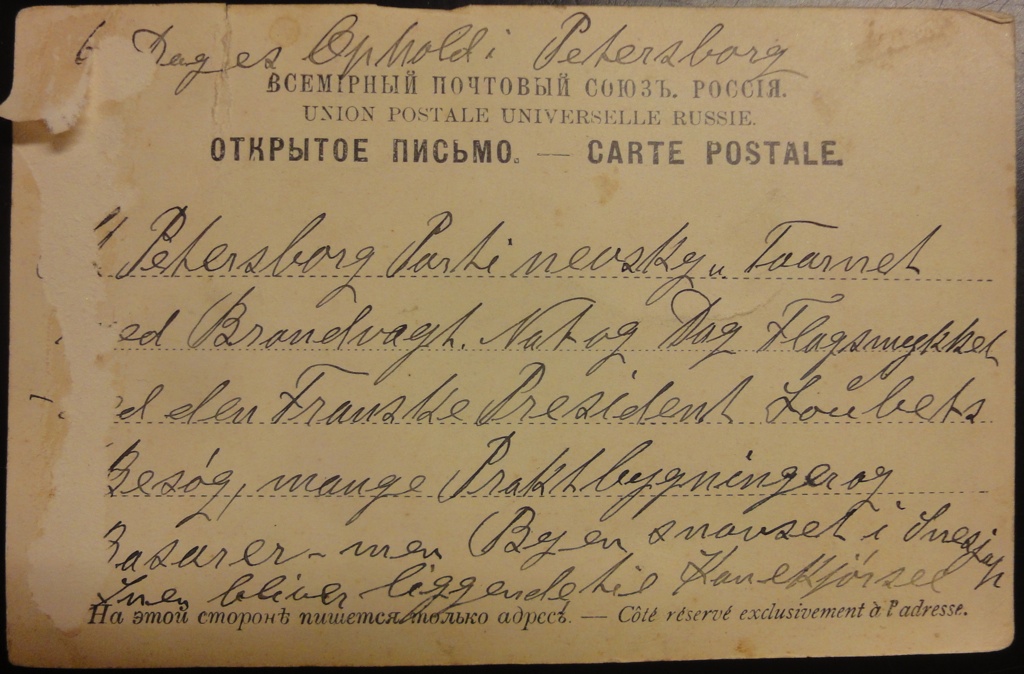 6 Dages Ophold i Petersborg
ВСЕМІРНЫЙ ПОЧТОВЫЙ СОЮЗЪ. РОССІЯ.
UNION POSTALE UNIVERSELLE RUSSIE.
ОТКРЫТОЕ ПИСЬМО. — CARTE POSTALE.
Petersborg Parti nevsky Taarnet
ed Brandvagt. Nat og Dag Flagsmykket
ed den Franske President Loubets
Besøg, mange Praktbygninger og
Basarer - men Byen snavset i
Sneen bliver liggende til Kanekjørsel
На этой сторонѣ пишется только адресъ. — Côté réservé exclusivement à l'adresse.